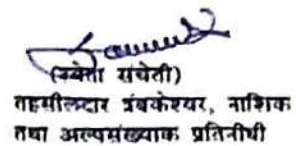 (श्वेता संचेती)
तहसीलदार त्रंबकेश्वर, नाशिक
तथा अल्पसंख्याक प्रतिनीधी